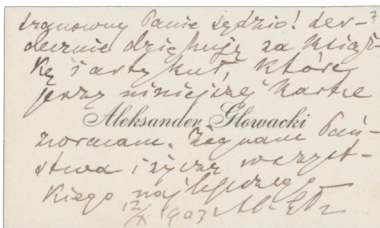 Szanowny Panie Sędzio! Ser-
decznie dziękuję za książ-
kę i artykuł, które
przy niniejszej kartce
Aleksander Głowacki
zwracam. Żegnam Pań-
stwa i życzę wszyst-
kiego najlepszego
12/X 1907